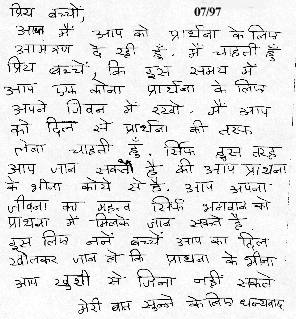 प्रिय बच्चो, 07/97
आज मैं आप को प्रार्थना के लिए
आमंत्रण दे रही हूँ. मैं चाहती हूँ
प्रिय बच्चें, कि इस समय में
आप एक कोना प्रार्थना के लिए
अपने जिवन में रखो. मैं आप
को दिल से प्रार्थना की तरफ
लेना चाहती हूँ. सिर्फ इस तरह
आप जान सकते है की आप प्रार्थना
के भीना कोये से है. आप अपना
जीवना का महत्व सिर्फ भगवान को
प्रार्थना में मिलके जान सकते है
इस लिए नन्नें बच्चें आप का दिल
खोलकर जान ले कि प्रार्थना के भीना
आप खुशी से जिना नहीं सकते
मेरी बात सुन्ने के लिए धन्यवाद